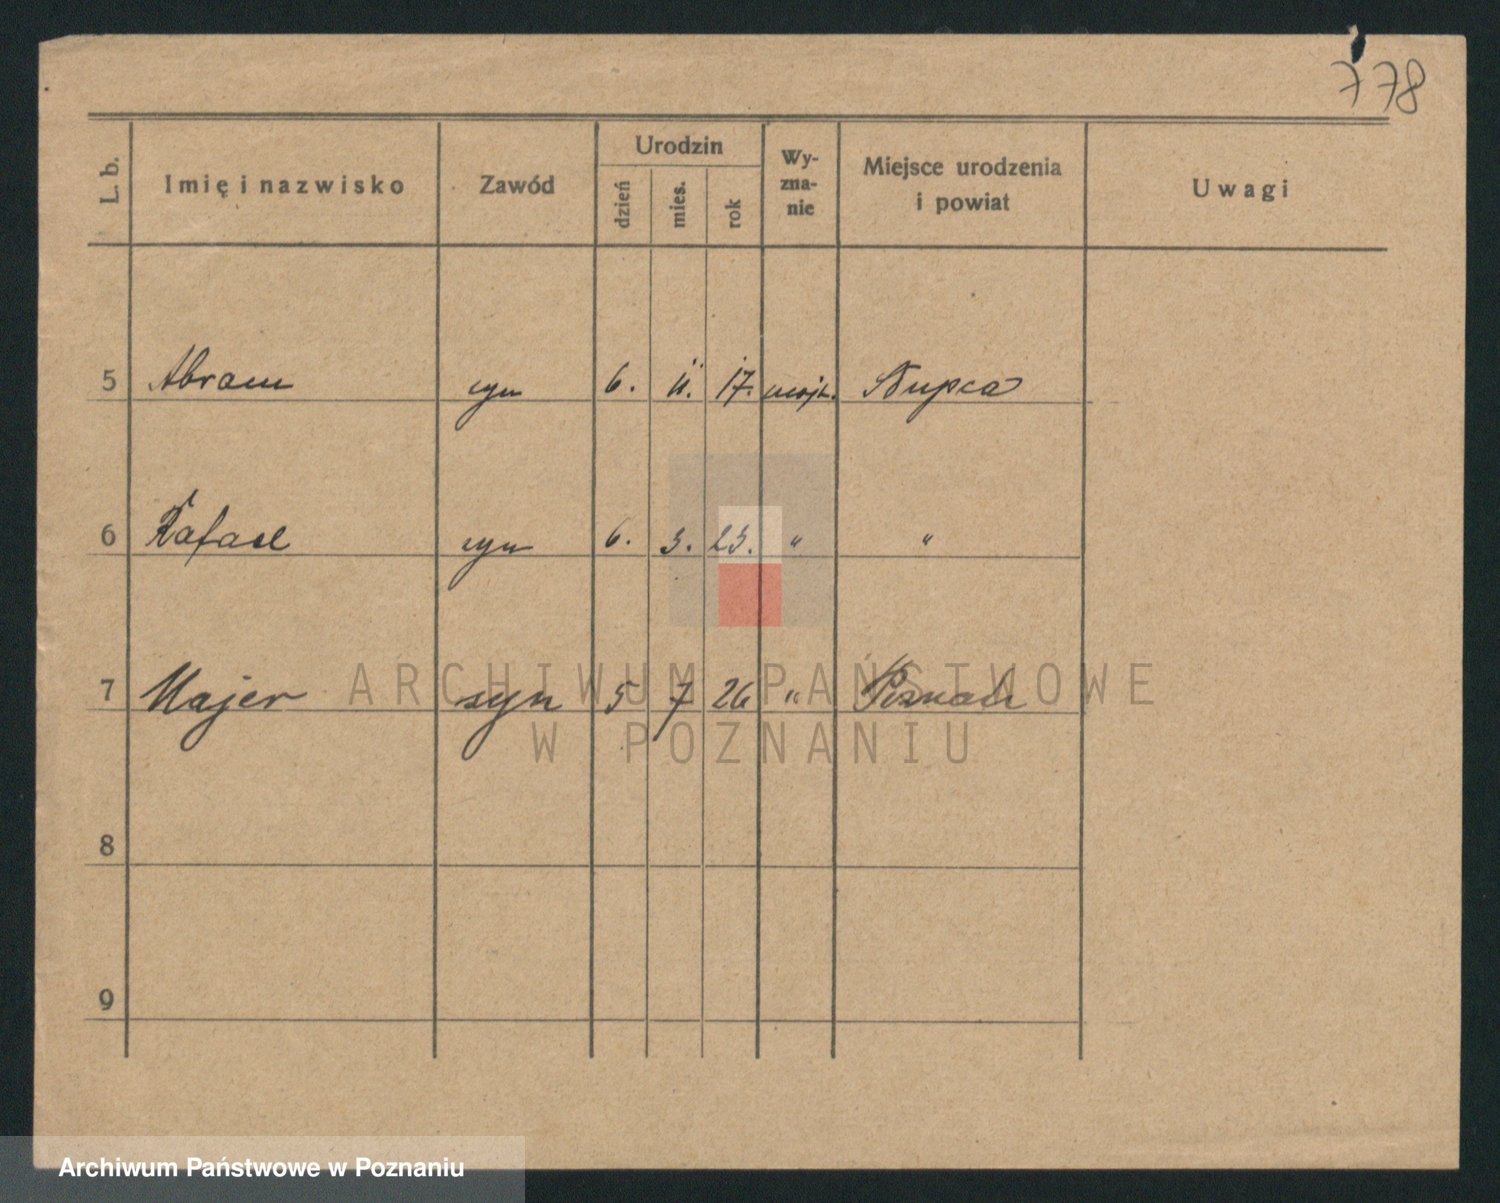 778
L. b. Imię i nazwisko Zawód Urodzin dzień mies. rok Wy-zna-nie Miejsce urodzenia i powiat Uwagi
5 Abram syn 6. 11. 17. mojż. Słupca
6 Rafael syn 6. 3. 23. " "
7 Majer syn 5 7 26 " Poznań
8
9
ARCHIWUM PAŃSTWOWE
W POZNANIU
Archiwum Państwowe w Poznaniu